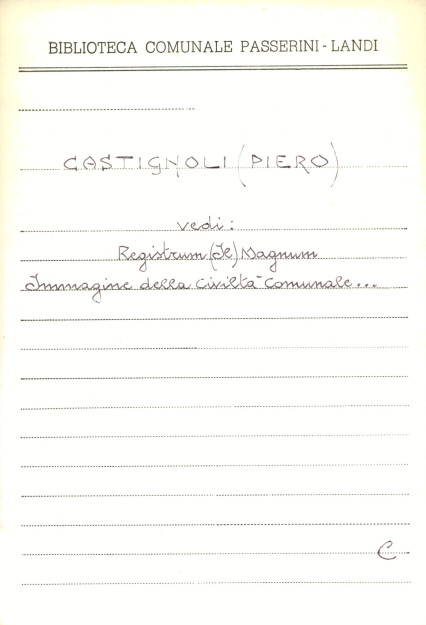 BIBLIOTECA COMUNALE PASSERINI - LANDI
CASTIGNOLI (PIERO)
vedi:
Registrum (Il) Magnum
Immagine della Civiltà Comunale...
C